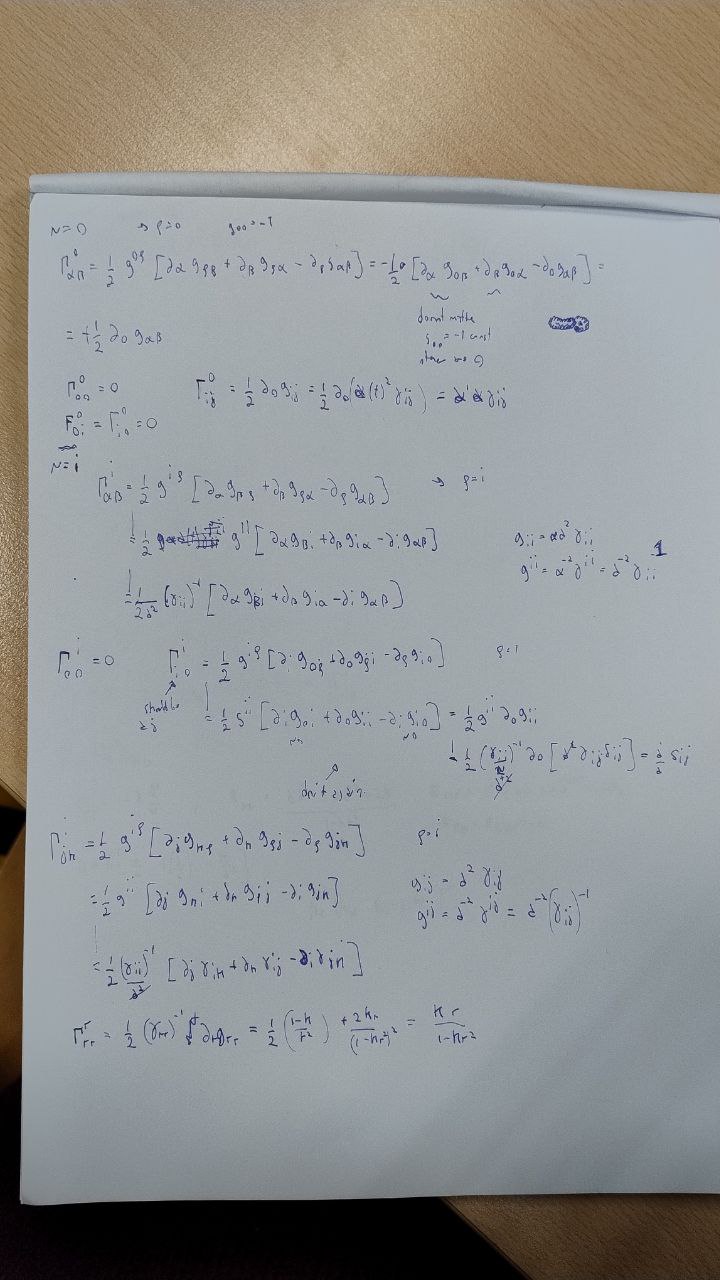 μ=0 → ρ=0 g₀₀=-1
Γ⁰_αβ = 1/2 g^{0ρ} [∂_α g_ρβ + ∂_β g_ρα - ∂_ρ g_αβ] = -1/2 [∂_α g_0β + ∂_β g_0α - ∂_0 g_αβ] =
= +1/2 ∂_0 g_αβ
g_00 = -1 const
Γ⁰_00 = 0 Γ⁰_ij = 1/2 ∂_0 g_ij = 1/2 ∂_0 (a(t)² γ_ij) = a' a γ_ij
Γ⁰_0i = Γ⁰_i0 = 0
μ=i
Γ^i_αβ = 1/2 g^{iρ} [∂_α g_βρ + ∂_β g_ρα - ∂_ρ g_αβ] → ρ=i
= 1/2 g^{ii} [∂_α g_βi + ∂_β g_iα - ∂_i g_αβ] g_ii = a² γ_ii
g^{ii} = a^{-2} γ^{ii} = a^{-2} γ_ii^{-1}
= 1/2a² (γ_ii)^{-1} [∂_α g_βi + ∂_β g_iα - ∂_i g_αβ]
Γ^i_00 = 0 Γ^i_i0 = 1/2 g^{iρ} [∂_i g_0ρ + ∂_0 g_ρi - ∂_ρ g_i0] ρ=i
should be j
= 1/2 g^{ii} [∂_i g_0i + ∂_0 g_ii - ∂_i g_i0] = 1/2 g^{ii} ∂_0 g_ii
= 1/2 (γ_ii)^{-1}/a² ∂_0 [a² γ_ij δ_ij] = ȧ/a δ_ij
Γ^i_jk = 1/2 g^{iρ} [∂_j g_kρ + ∂_k g_ρj - ∂_ρ g_jk] ρ=i
= 1/2 g^{ii} [∂_j g_ki + ∂_k g_ij - ∂_i g_jk] g_ij = a² γ_ij
g^{ij} = a^{-2} γ^{ij} = a^{-2} (γ_ij)^{-1}
= 1/2 (γ_ii)^{-1}/a² [∂_j γ_ik + ∂_k γ_ij - ∂_i γ_jk]
Γ^r_rr = 1/2 (γ_rr)^{-1} ∂_r g_rr = 1/2 (1-k/r²) + 2kr/(1-kr²)² = kr/1-kr²